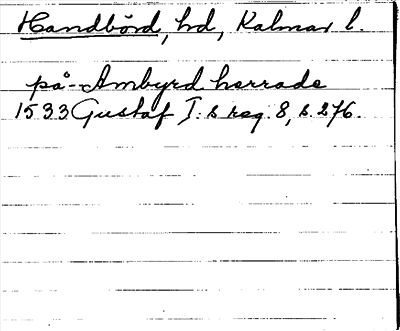 Handbörd, hd, Kalmar l.
på Ambyrd herrade
1533 Gustaf I:s reg. 8, s. 276.